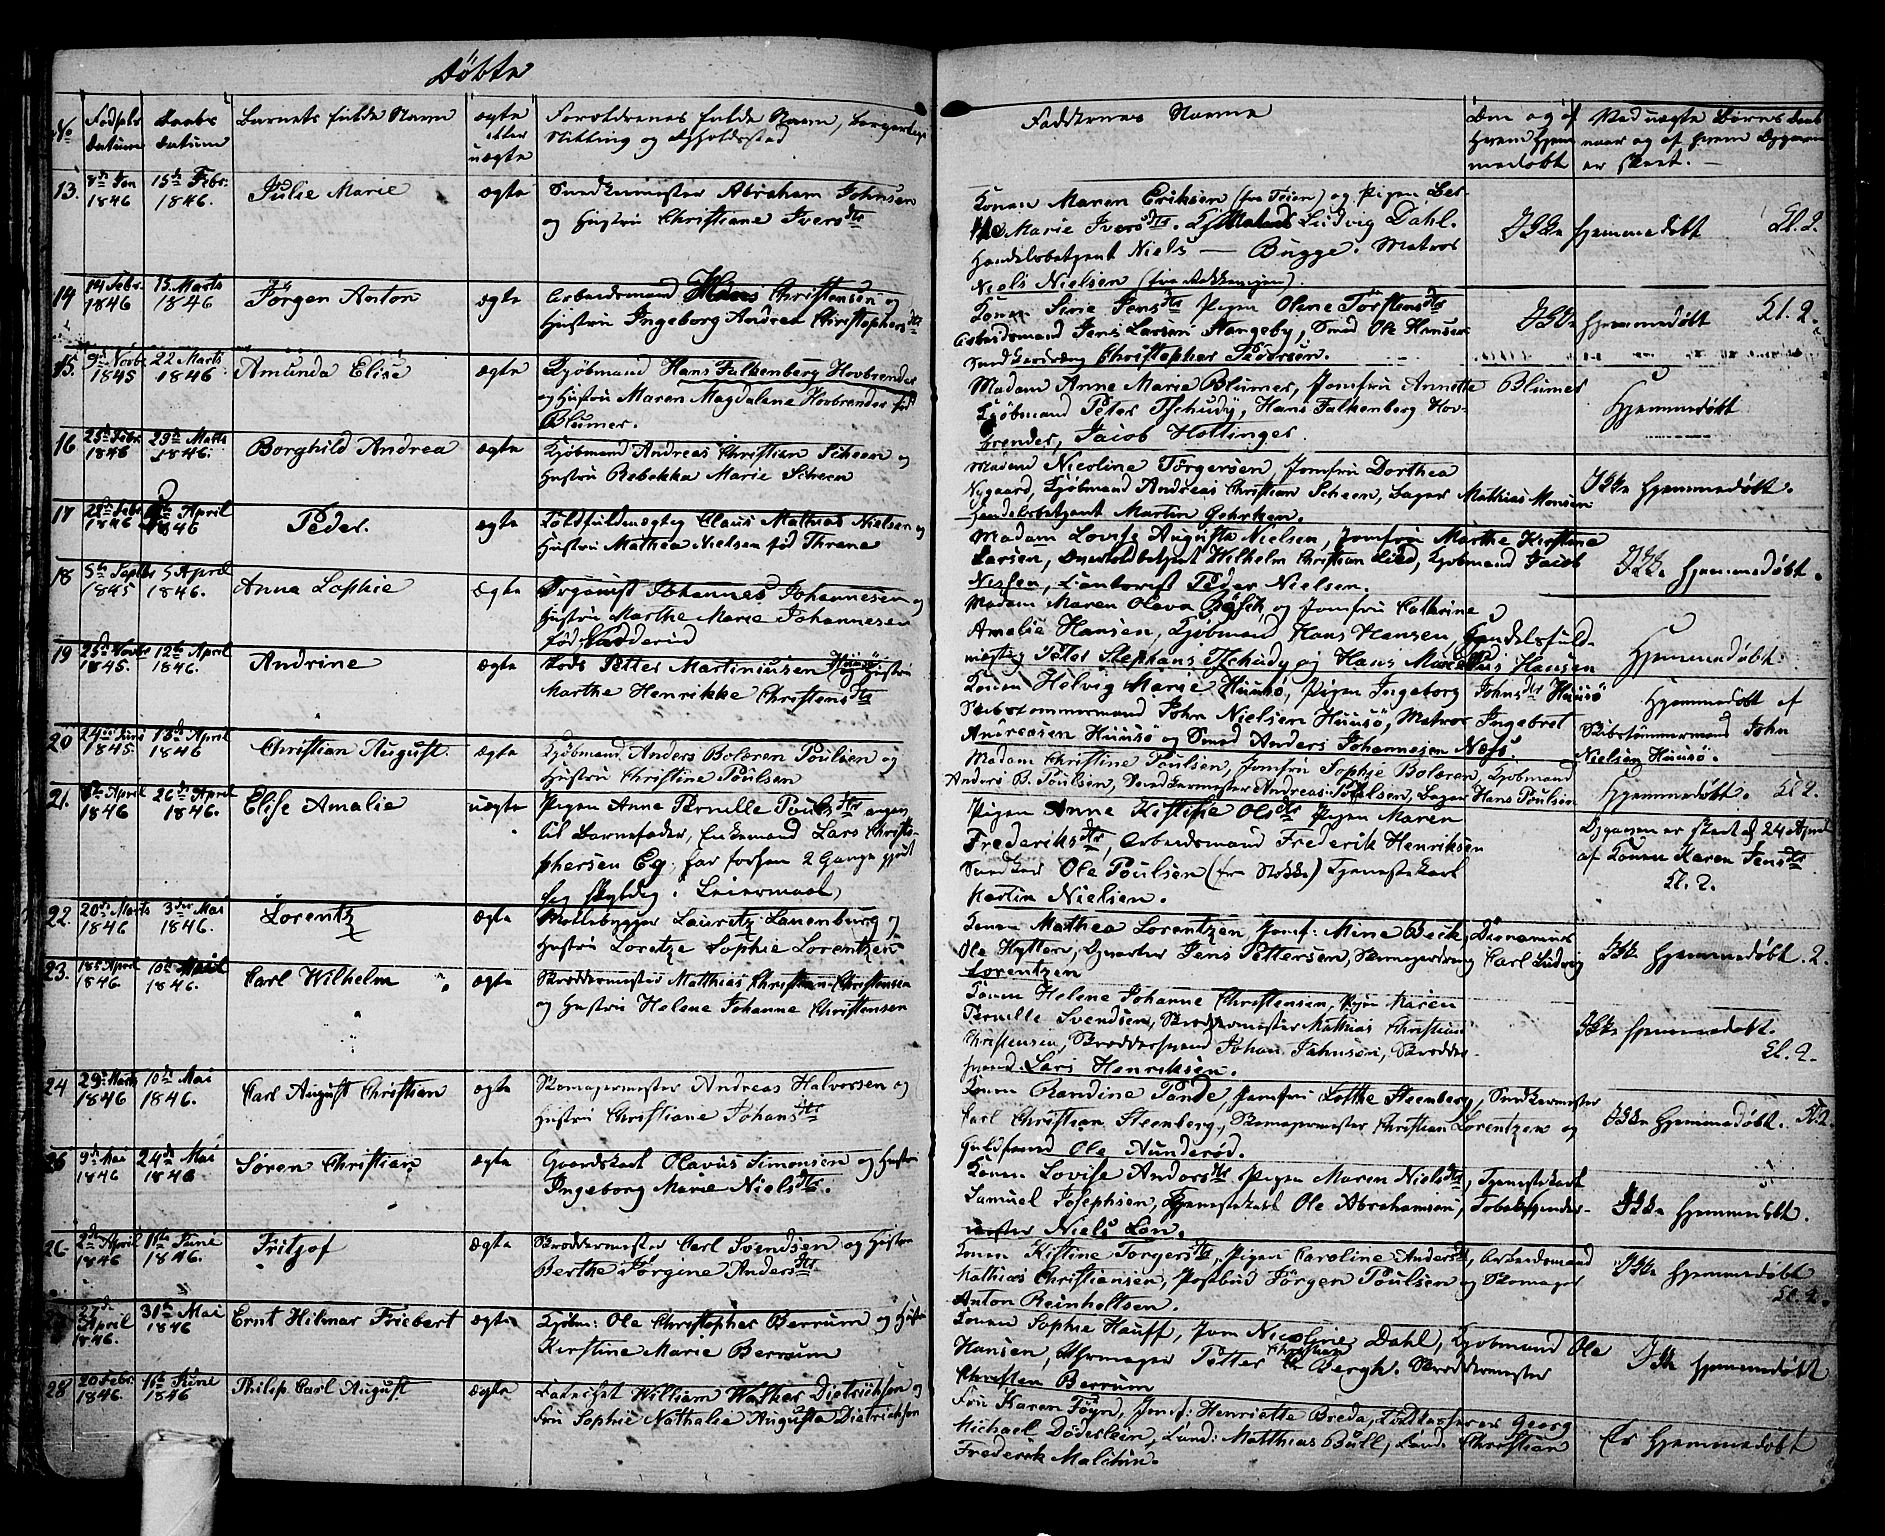 Døbte
No
Fødsels datum
Daabs datum
Barnets fulde Navn
ægte eller uægte
Forældrenes fulde Navn, borgerlige
Stilling og Opholdssted
Faddernes Navne
Om og af hvem hjemmedøbt
Ved uægte Børns Daab
naar og af hvem
er skeet.
13. 8de Jan 1846 15de Febr. 1846. Julie Marie ægte
Snedkermester Abraham Johnsen
og Hustru Christiane Iversdtr
Konen Maren Eriksen (fra Teien) og Pigen
Marie Iversdtr. Ludvig Dahl.
Handelsbetjent Niels — Bugge. Matros
Niels Nielsen
Ikke hjemmedøbt
14 14 Febr. 1846 15 Marts 1846 Jörgen Anton ægte
Arbeidsmand Hans Christensen og
Hustru Ingeborg Andrea Christophersdtr
Konen Jensdtr Pigen Olene Torstensdtr
Arbeidsmand Jens Larsen Slangeby, Smed Ole Hansen
Christopher Pedersen.
Ikke hjemmedøbt
15. 9de Novbr. 1845 22 Marts 1846 Amunda Elise ægte
Kjøbmand Hans Falkenberg Hovbrender
og Hustru Maren Magdalena Hovbrender fød
Blumer.
Madam Anne Marie Blumer, Jomfru Annette Blumer
Kjøbmand Peter Tschudy, Hans Falkenberg Hov-
brender, Jacob Hottinger.
Hjemmedøbt
16 25de Febr. 1846 29de Marts 1846. Borghild Andrea ægte
Kjøbmand Andreas Christian Scheen og
Hustru Rebekka Marie Scheen
Madam Nicoline Torgersen, Jomfru Dorthea
Nygaard, Kjøbmand Andreas Christian Scheen, Bager Mathias Monsen
Handelsbetjent Martin Gehrken.
Ikke hjemmedøbt.
17 1846 April 1846 Peder. ægte
Toldfuldmægtig Claus Mathias Nielsen og
Hustru Mathea Nielsen fød Thrane
Madam Lovise Augusta Nielsen, Jomfru Marthe Kirstine
Larsen, Wilhelm Christian Lied, Kjøbmand Jacob
Peder Nielsen.
Ikke hjemmedøbt.
18 5te Septbr 1845 5 April 1846. Anna Sophie ægte
Organist Johannes Johannesen og
Hustru Marthe Marie Johannesen
Madam Maren Olava og Jomfru Cathrine
Amalie Hansen, Kjøbmand Hans Hansen, Handelsfuld-
mægtig Peter Stephans Tschudy og Hans Marcelius Hansen
Hjemmedøbt.
19 25de Novbr 1845. 12te April 1846. Andrine ægte
Lods Petter Martiniusen Huusö og Hustru
Marthe Henrikke Christensdtr
Konen Helvig Marie Huusö, Pigen Ingeborg Johnsdtr Huusö
Skibstømmermand John Nielsen Huusö, Matros Ingebret
Andreasen Huusö og Smed Anders Johannesen Næss.
Hjemmedøbt af
Skibstømmermand John
Nielsen Huusö.
20 24de Juni 1845 13de April 1846 Christian August. ægte
Kjøbmand Anders Bolæren Poulsen og
Hustru Christine Poulsen
Madam Christine Poulsen, Jomfru Sophie Bolæren, Kjøbmand
Anders B. Poulsen, Snedkermester Andreas Poulsen, Bager Hans Poulsen
Hjemmedøbt.
21. April 1846 26de April 1846. Elise Amalie uægte
Pigen Anne Pernille Poulsdtr angav
til Barnefader, Enkemand Lars Christo-
phersen Eg. har forhen 2 Gange gjort
sig skyldig i Leiermaal,
Pigen Anne Kistine Olsdtr Pigen Maren
Frederiksdtr, Arbeidsmand Frederik Henriksen
Ole Poulsen (fra Nøkke) Tjenestekarl
Martin Nielsen.
er skeet d 24 April
af Konen Karen Jensdtr
22. 20de Marts 1846 3die Mai 1846. Lorentz ægte
Møllebygger Lauritz Lauenburg og
Hustru Loretze Sophie Lorentzen
Konen Mathea Lorentzen, Jomf: Mine Beck,
Ole Hytten, Jens Pettersen, Skomagersvend Carl Ludvig
Lorentzen
Ikke hjemmedøbt.
23. 18de April 1846 10de Mai 1846. Carl Wilhelm ægte
Skræddermester Matthias Christian Christensen
og Hustru Helene Johanne Christensen
Konen Helene Johanne Christensen, Pigen Karen
Pernille Svendsen, Skræddermester Mathias Christian
Christensen, Skræddersvend Johan Johnsen, Skrædder-
svend Lars Henriksen.
Ikke hjemmedøbt.
24 29de Marts 1846 10de Mai 1846. Carl August Christian ægte
Skomagermester Andreas Halvorsen og
Hustru Christiane Johansdtr
Konen Randine Pande, Jomfru Lotthe Steenberg, Snedkermester
Carl Christian Steenberg, Skomagermester Christian Lorentzen og
Guldsmed Ole Aunderød.
Ikke hjemmedøbt.
9de Mai 1846 24de Mai 1846. Søren Christian ægte
Gaardskarl Olavus Simonsen og Hustru
Ingeborg Marie Nielsdtr.
Konen Lovise Andersdtr Pigen Maren Nielsdtr, Tjenestekarl
Samuel Josephsen, Tjenestekarl Ole Abrahamsen, Tobakspinder-
mester Niels Lon.
Ikke hjemmedøbt.
26. 2de April 1846 Juni 1846. Fritjof ægte
Skræddermester Carl Svendsen og Hustru
Berthe Jørgine Andersdtr
Konen Kistine Torgersdtr, Pigen Caroline Andersdtr, Arbeidsmand
Mathias Christiansen, Postbud Jørgen Poulsen og Skomager
Anton Reinholtsen.
Ikke hjemmedøbt
27de April 1846. 31te Mai 1846 Ernt Hilmar Friebert ægte
Kjøbm: Ole Christopher Berrum og Hustru
Kirstine Marie Berrum
Konen Sophie Hauff, Jom Nicoline Dahl, Kjøbmand Ole
Hansen, Uhrmager Petter Christian Bergh. Skræddermester
Christen Berrum
Ikke hjemmedøbt
28 20 Febr. 1846 Juni 1846 Philip Carl August ægte
Catechet William Walker Dietrichson og
Fru Sophie Nathalie Augusta Dietrichson
Fru Karen Föyn, Jomf: Henriette Breda, Toldkasserer Georg
Michael Döderlein, Matthias Bull, Christian
Frederik Malthin.
Er hjemmedøbt